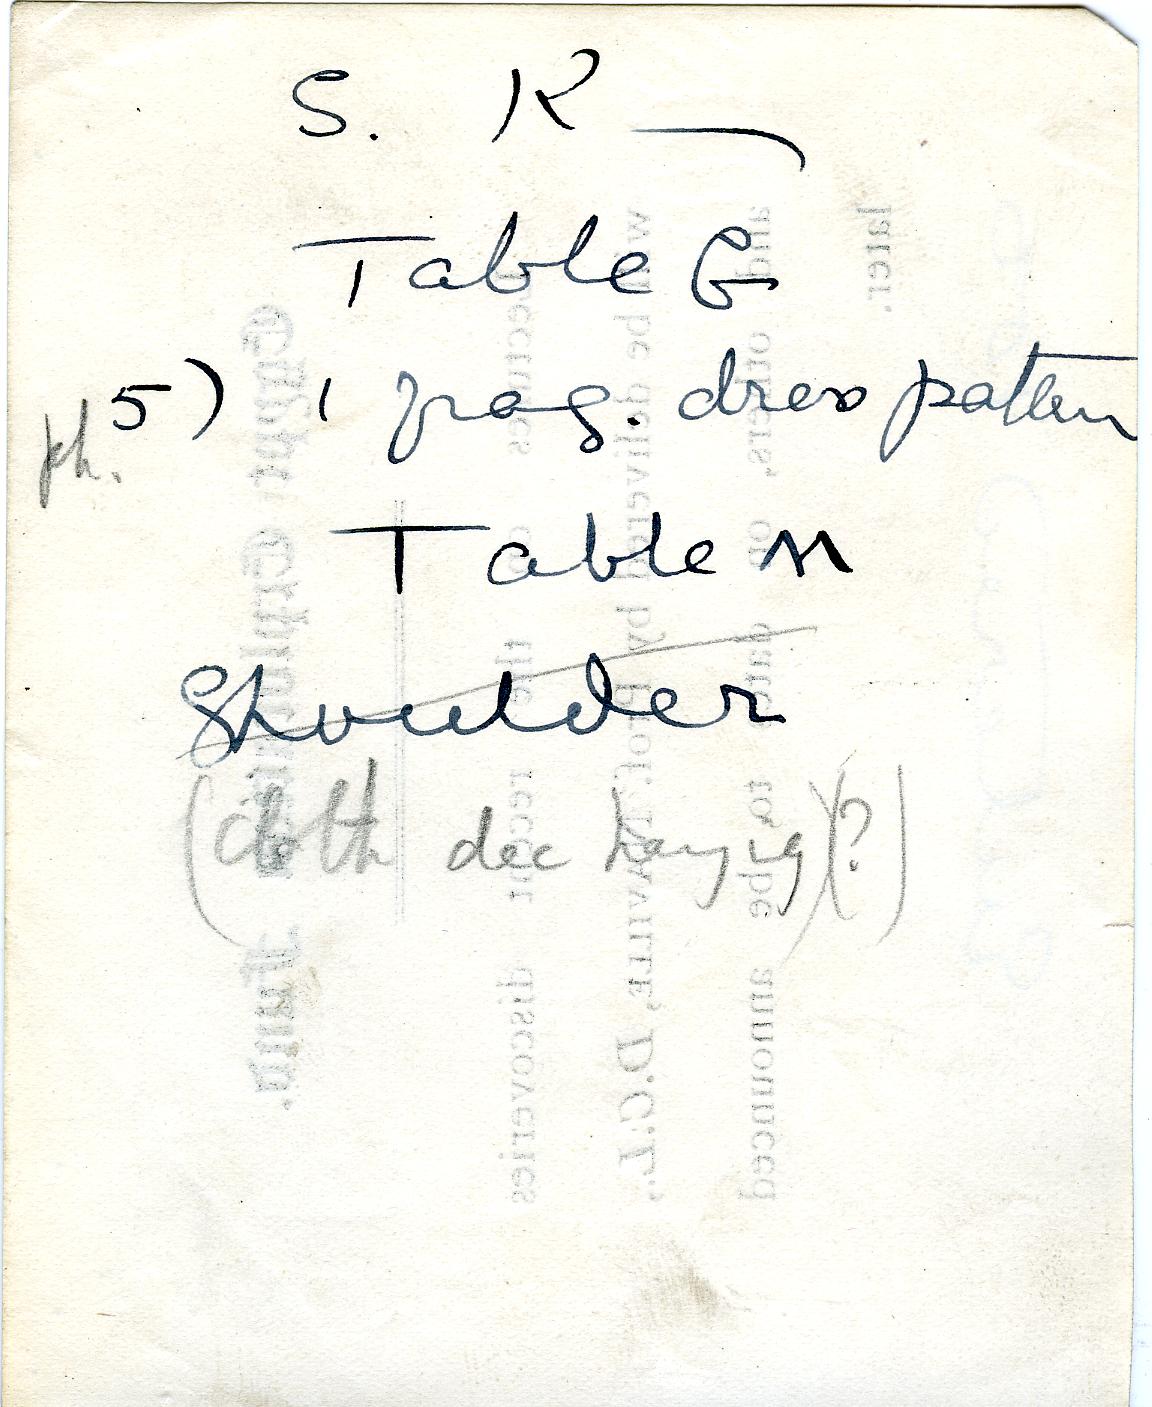 S. R
Table G
ph. 5) 1 frag. dress pattern
Table M
Shoulder
(cloth dec hanging)(?)